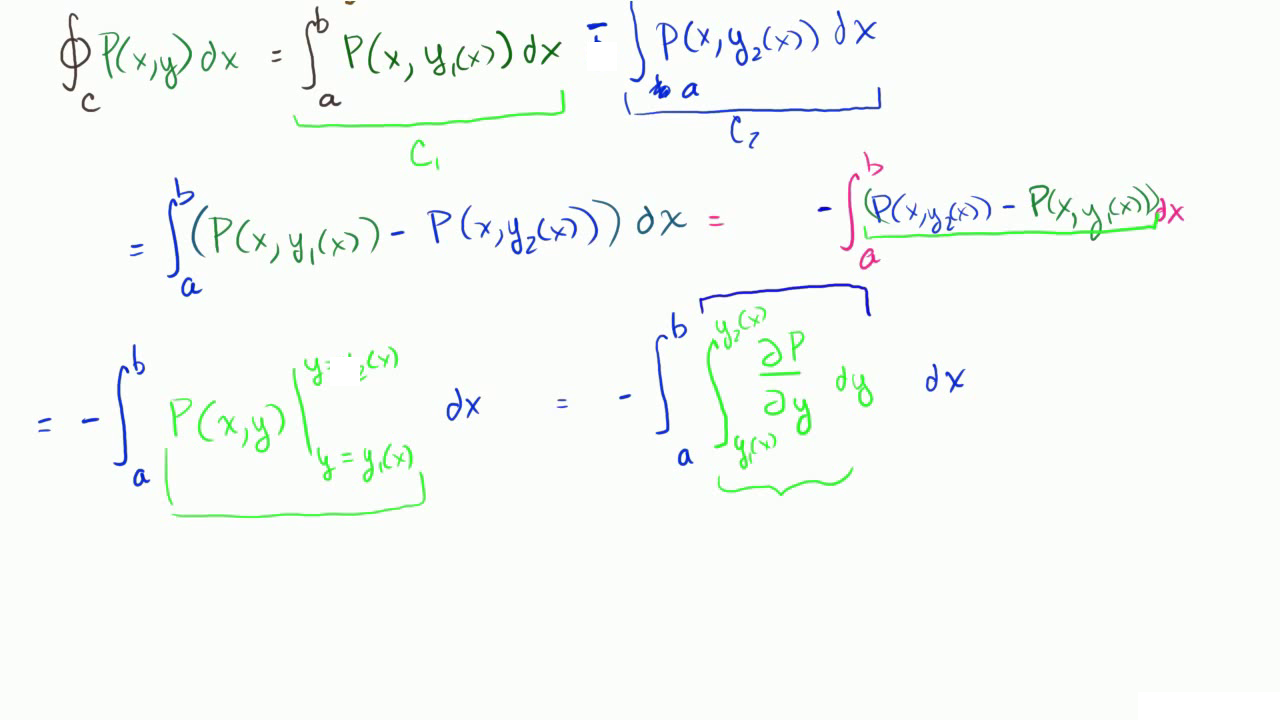 ∮_C P(x,y) dx = ∫_a^b P(x, y₁(x)) dx - ∫_a P(x, y₂(x)) dx
C₁ C₂
= ∫_a^b (P(x, y₁(x)) - P(x, y₂(x))) dx = - ∫_a^b (P(x, y₂(x)) - P(x, y₁(x))) dx
= - ∫_a^b P(x,y) |_{y = y₁(x)}^{y = ₂(x)} dx = - ∫_a^b ∫_{y₁(x)}^{y₂(x)} ∂P/∂y dy dx